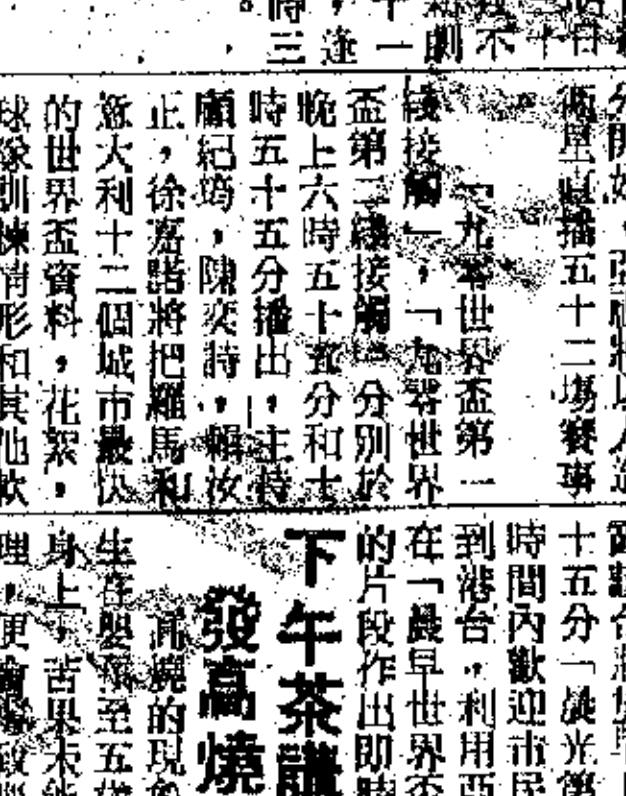 十一
逢
時三。
衛星直播五十二場賽事
「九零世界盃第一
綫接觸」,「九零世界
盃第二綫接觸」分別於
晚上六時五十五分和十
時五十五分播出,主持
顧紀筠,陳奕詩,賴汶
正,徐嘉諾將把羅馬和
意大利十二個城市最快
的世界盃資料,花絮,
球隊訓練情形和其他軟
十五分「
時間內歡迎市民
到港台,利用亞
在「晨早世界盃
的片段作出即時
下午茶講
發高燒
高燒的現象
生在嬰孩至五歲
身上,苦果未能
理,更會